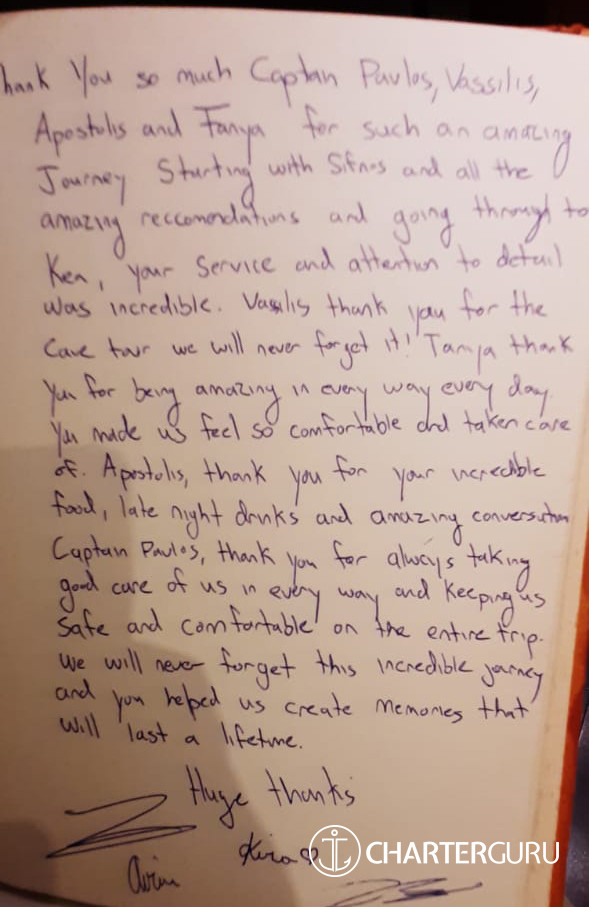 hank You so much Captan Pavlos, Vassilis,
Apostolis and Tanya for such an amazing
Journey Starting with Sifnos and all the
amazing reccomendations and going through to
Kea, your Service and attention to detail
was incredible. Vassilis thank you for the
Cave tour we will never forget it! Tanya thank
you for being amazing in every way every day.
You made us feel so comfortable and taken care
of. Apostolis, thank you for your incredible
food, late night drinks and amazing conversation
Captain Pavlos, thank you for always taking
good care of us in every way and keeping us
safe and comfortable on the entire trip.
We will never forget this incredible journey
and you helped us create memories that
will last a lifetime.
Huge thanks
Kira
CHARTERGURU